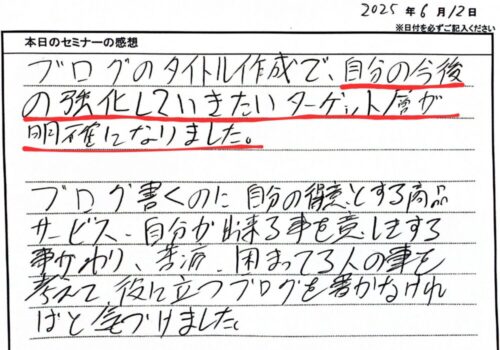 2025年6月12日
※日付を必ずご記入ください
本日のセミナーの感想
ブログのタイトル作成で、自分の今後
の強化していきたいターゲット層が
明確になりました。
ブログ書くのに自分の得意とする商品
サービス、自分が出来る事を意しきする
事がわり、苦、困まってる人の事を
考えて、役に立つブログを書かなけれ
ばと気づけました。